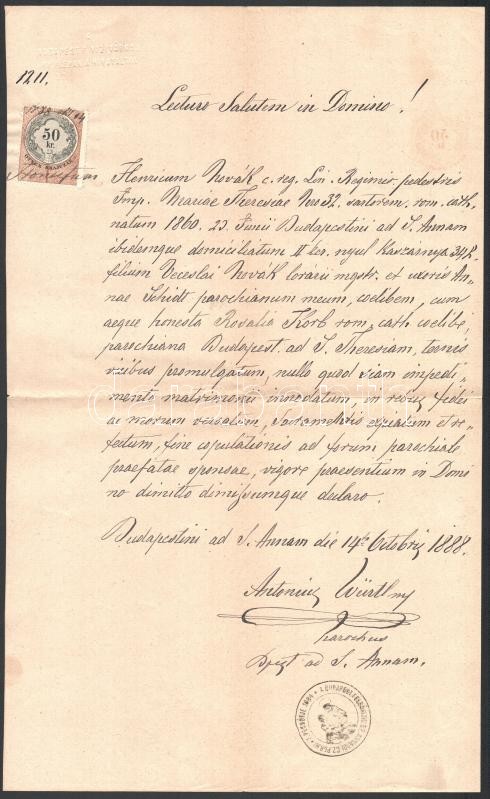 1211.
50
kr.
Lecturo Salutem in Domino!
Henricum Novák c. reg. Regimis pedestris
Imp. Mariae Theresiae Nro 32. sartorem, rom. cath.
natum 1860. 23. Junii Budapestini ad S. Annam
ibidemque domiciliatum II ker. nyul Kaszárnya
filium Veceslai Novák lorarii mgstr. et uxoris An-
nae Schidt parochianum meum, coelibem, cum
aeque honesta Rosalia Korb rom. cath. coelibe,
parochiana Budapest. ad S. Theresiam, ternis
vicibus promulgatum, nullo quod sciam impedi-
mento matrimonii innodatum, in rebus fidei
ac morum versatum, Sacramentis expiatum et re-
fectum, fine copulationis ad forum parochiale
praefatae sponsae, vigore praesentium in Domi
no dimitto dimissumque declaro.
Budapestini ad S. Annam die 14 Octobris 1888.
Antonius Würtlny
parochus
Bpest ad S. Annam.